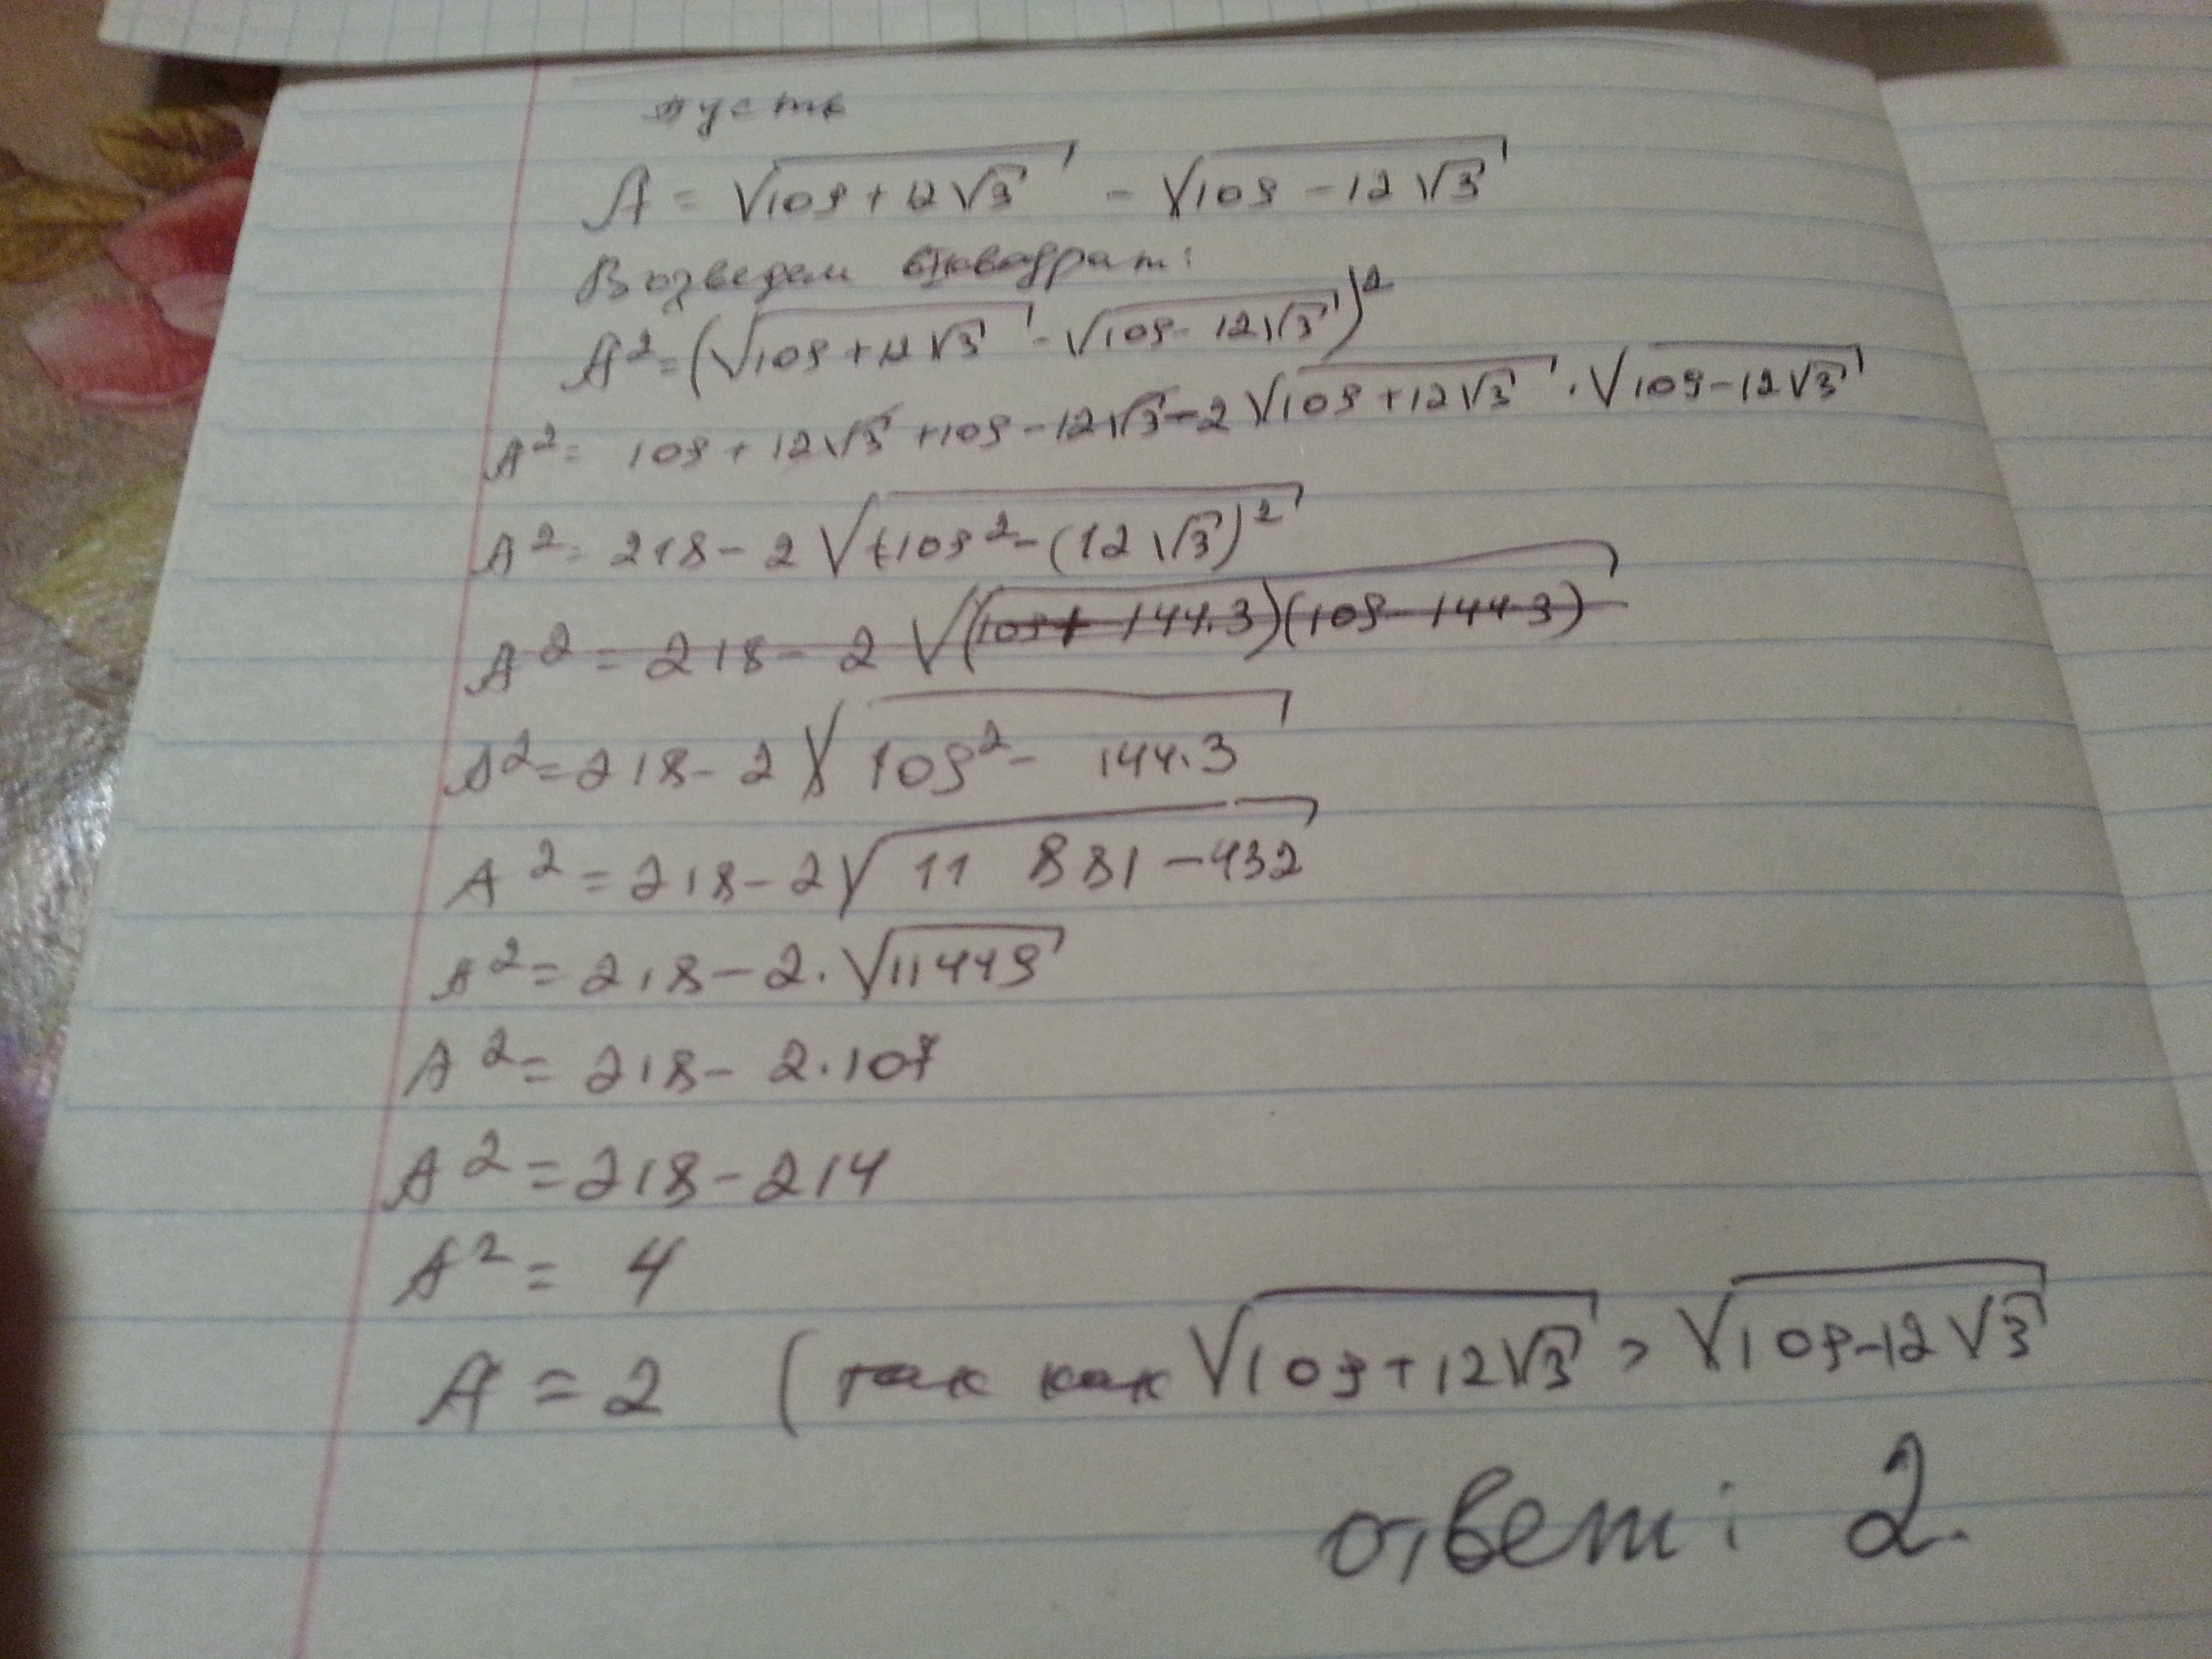 пусть
A = √(109 + 12√3) - √(109 - 12√3)
Возведем в квадрат:
A² = (√(109 + 12√3) - √(109 - 12√3))²
A² = 109 + 12√3 + 109 - 12√3 - 2√(109 + 12√3) · √(109 - 12√3)
A² = 218 - 2√(109² - (12√3)²)
A² = 218 - 2√((109 + 144·3)(109 - 144·3))
A² = 218 - 2√(109² - 144·3)
A² = 218 - 2√(11 881 - 432)
A² = 218 - 2·√11449
A² = 218 - 2·107
A² = 218 - 214
A² = 4
A = 2 (так как √(109 + 12√3) > √(109 - 12√3)
ответ: 2.